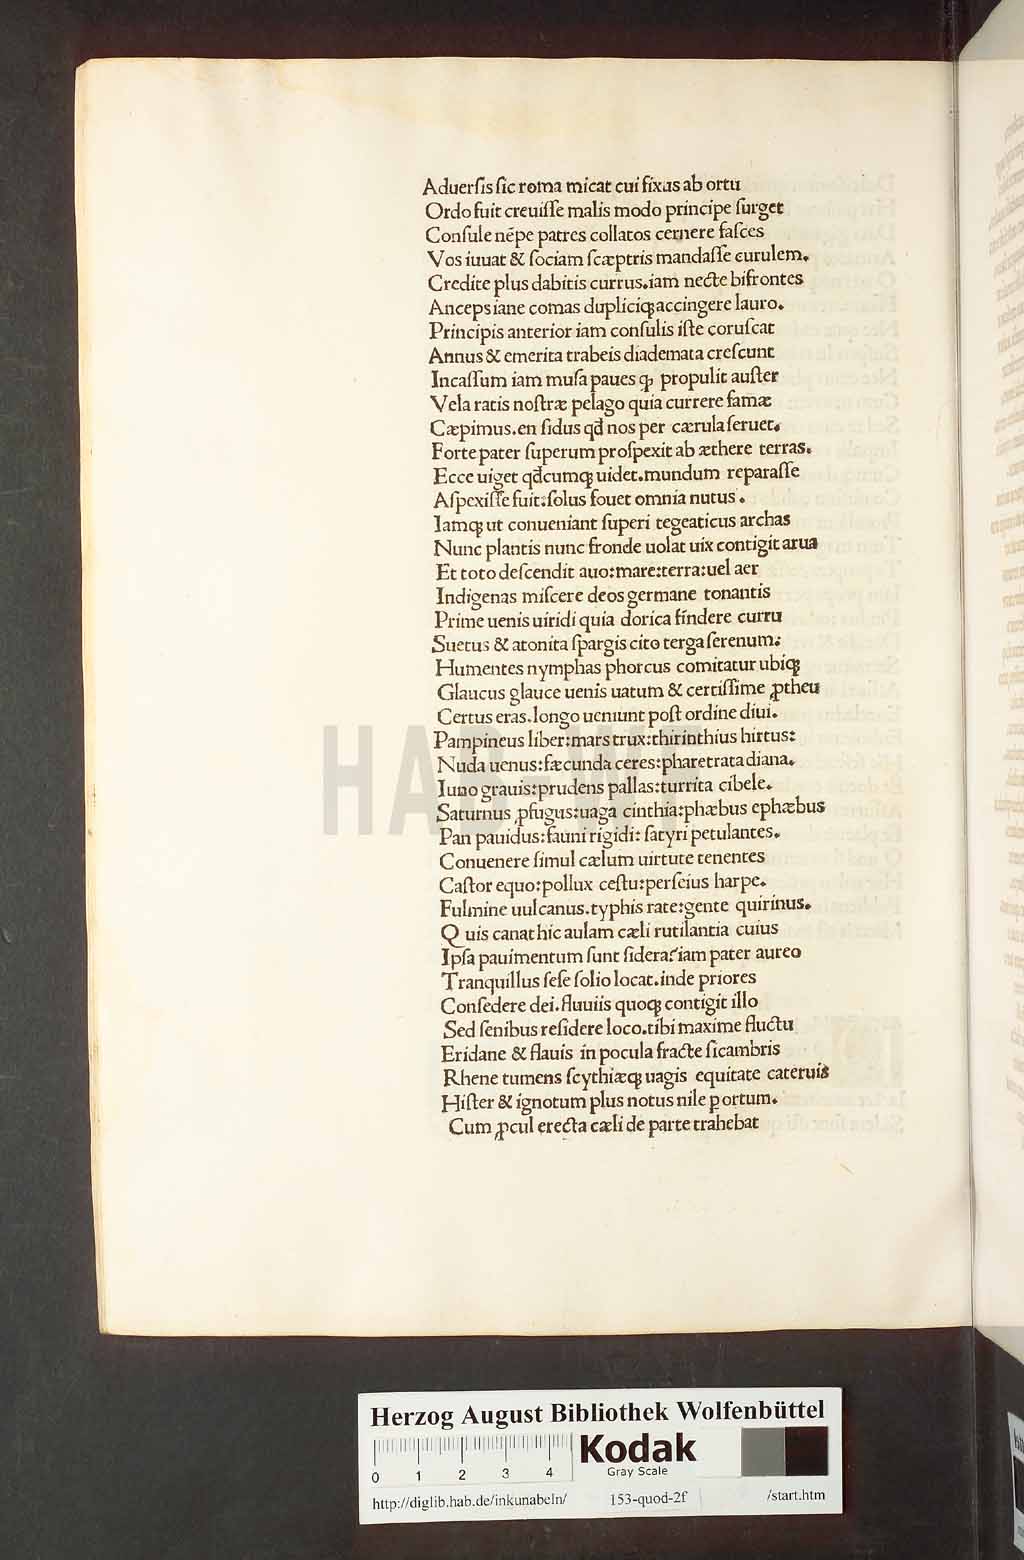 Aduerſis ſic roma micat cui fixus ab ortu
Ordo fuit creuiſſe malis modo principe ſurget
Conſule nēpe patres collatos cernere faſces
Vos iuuat & ſociam ſcæptris mandaſſe curulem.
Credite plus dabitis currus.iam necte bifrontes
Anceps iane comas dupliciqꝫ accingere lauro.
Principis anterior iam conſulis iſte coruſcat
Annus & emerita trabeis diademata creſcunt
Incaſſum iam muſa paues ꝙ propulit auſter
Vela ratis noſtræ pelago quia currere famæ
Cæpimus.en ſidus qđ nos per cærula ſeruet.
Forte pater ſuperum proſpexit ab æthere terras.
Ecce uiget qđcumqꝫ uidet.mundum reparaſſe
Aſpexiſſe fuit:ſolus fouet omnia nutus.
Iamqꝫ ut conueniant ſuperi tegeaticus archas
Nunc plantis nunc fronde uolat uix contigit arua
Et toto deſcendit auo:mare:terra:uel aer
Indigenas miſcere deos germane tonantis
Prime uenis uiridi quia dorica findere curru
Suetus & atonita ſpargis cito terga ſerenum:
Humentes nymphas phorcus comitatur ubiqꝫ
Glaucus glauce uenis uatum & certiſſime ꝓtheu
Certus eras.longo ueniunt poſt ordine diui.
Pampineus liber:mars trux:thirinthius hirtus:
Nuda uenus:fæcunda ceres:pharetrata diana.
Iuno grauis:prudens pallas:turrita cibele.
Saturnus ꝓfugus:uaga cinthia:phæbus ephæbus
Pan pauidus:fauni rigidi:ſatyri petulantes.
Conuenere ſimul cælum uirtute tenentes
Caſtor equo:pollux ceſtu:perſeius harpe.
Fulmine uulcanus.typhis rate:gente quirinus.
Quis canat hic aulam cæli rutilantia cuius
Ipſa pauimentum ſunt ſidera?iam pater aureo
Tranquillus ſeſe ſolio locat.inde priores
Conſedere dei.fluuiis quoqꝫ contigit illo
Sed ſenibus reſidere loco.tibi maxime fluctu
Eridane & flauis in pocula fracte ſicambris
Rhene tumens ſcythiæqꝫ uagis equitate cateruis
Hiſter & ignotum plus notus nile ꝑ ortum.
Cum ꝓcul erecta cæli de parte trahebat
HAB-WF
Herzog August Bibliothek Wolfenbüttel
0 1 2 3 4
Kodak
Gray Scale
http://diglib.hab.de/inkunabeln/ 153-quod-2f /start.htm